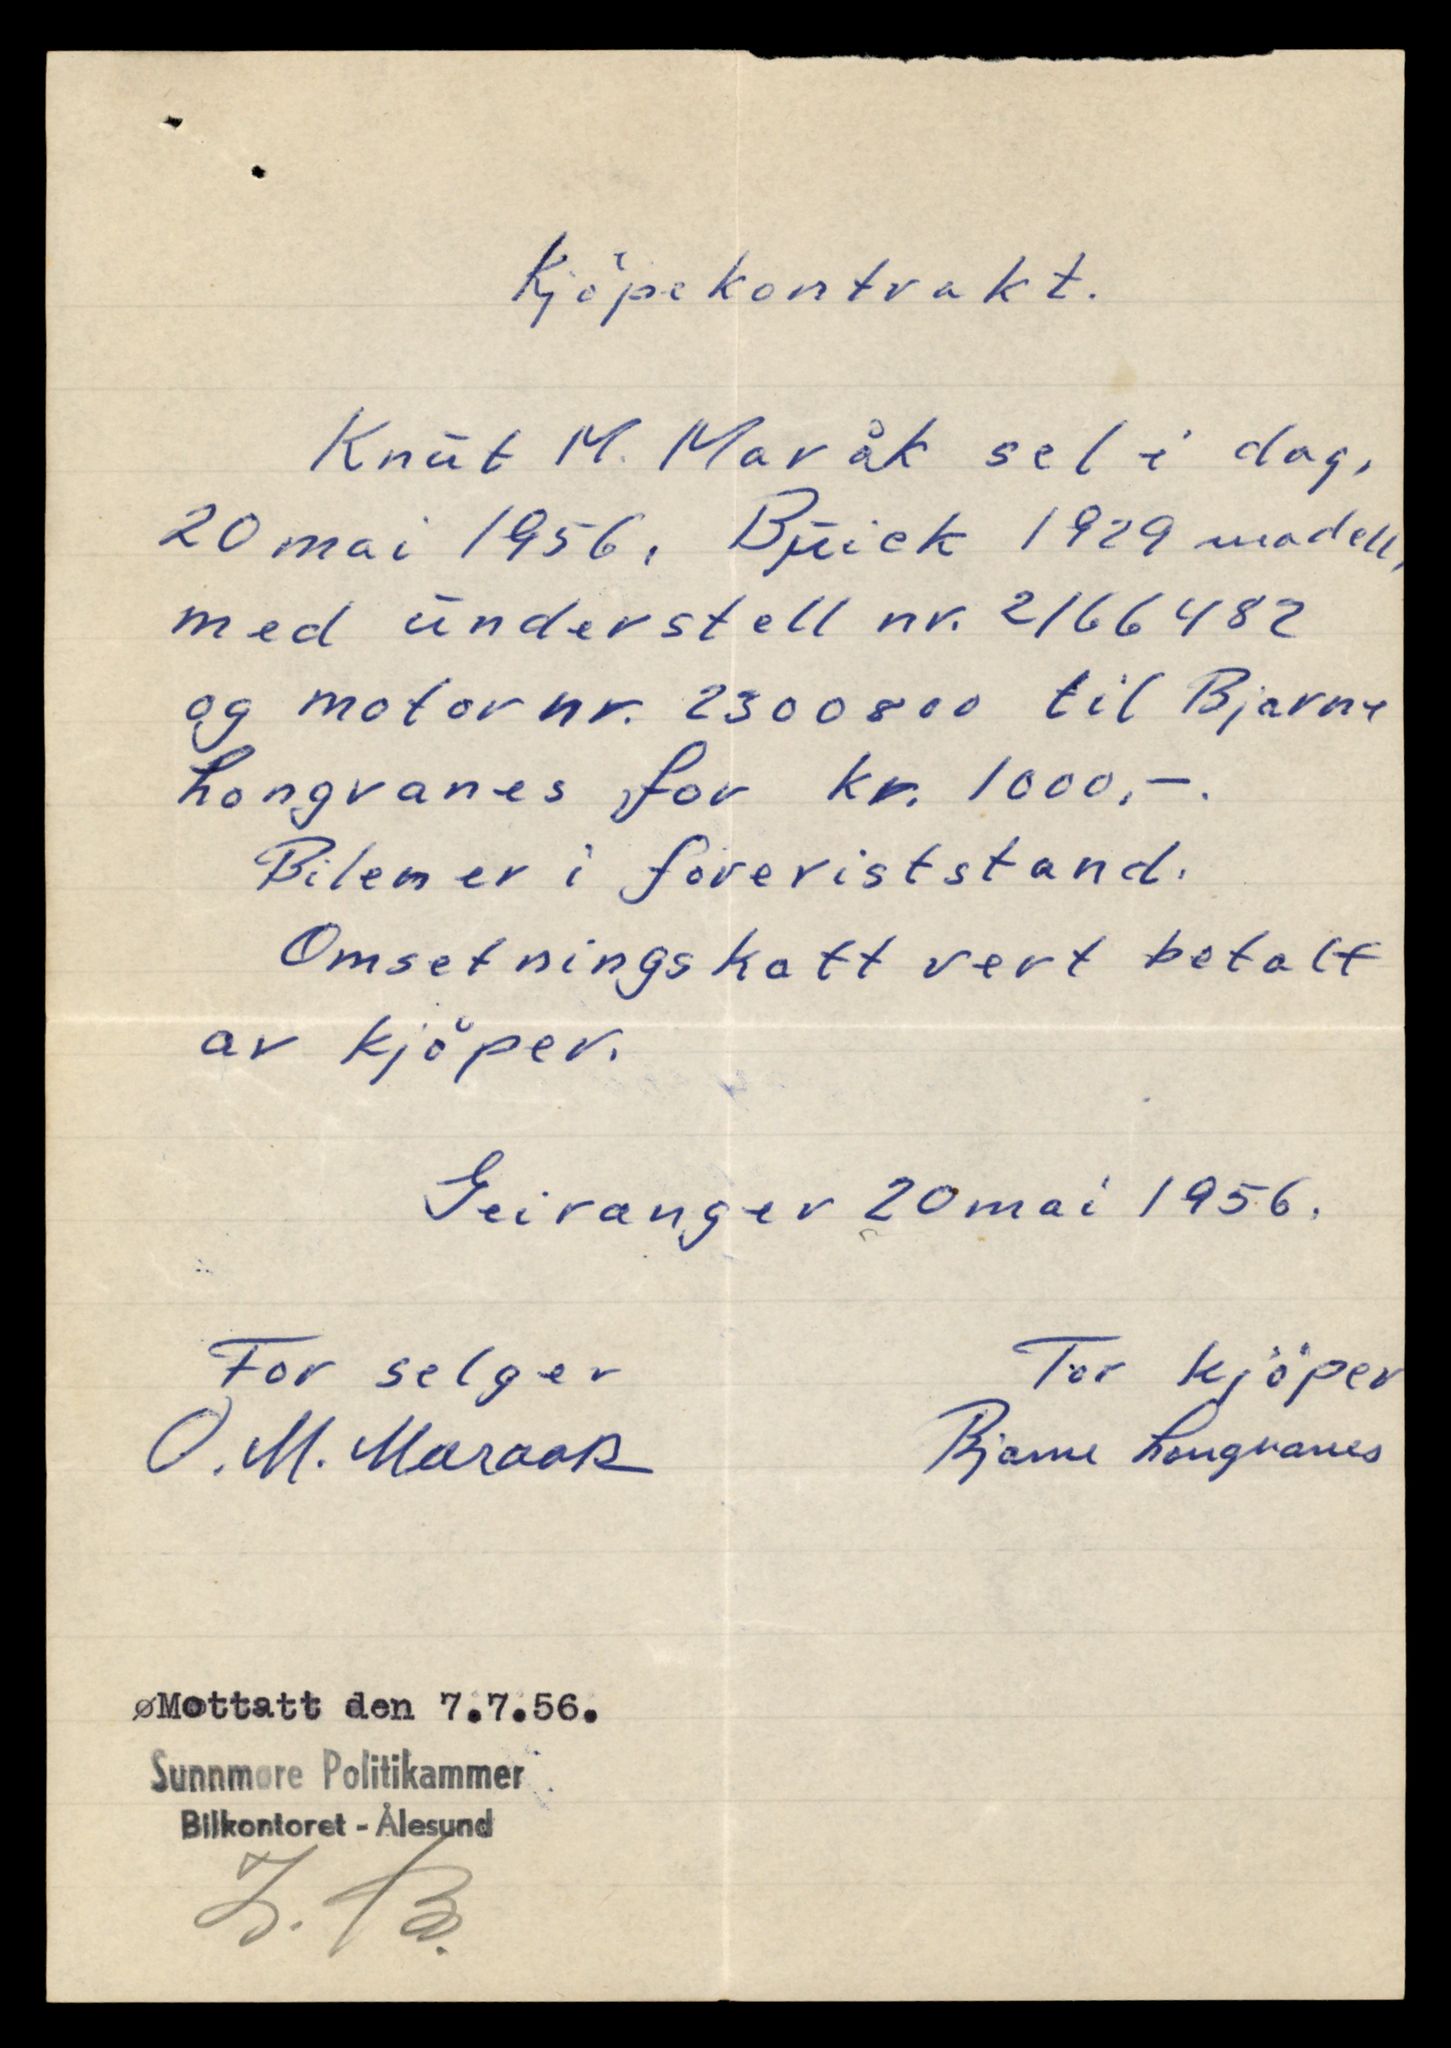 Kjöpekontrakt.
Knūt M. Maråk sel i dag,
20 mai 1956, Būick 1929 modell,
med ūnderstell nr. 2166482
og motor nr. 2300800 til Bjarne
Longvanes for kr. 1000,-.
Bilen er i föreriststand.
Omsetningskatt vert betalt
av kjöper.
Geiranger 20 mai 1956.
For selger
For kjöper
O. M. Maraak
Bjarne Longvanes
øMottatt den 7.7.56.
Sunnmøre Politikammer
Bilkontoret - Ålesund